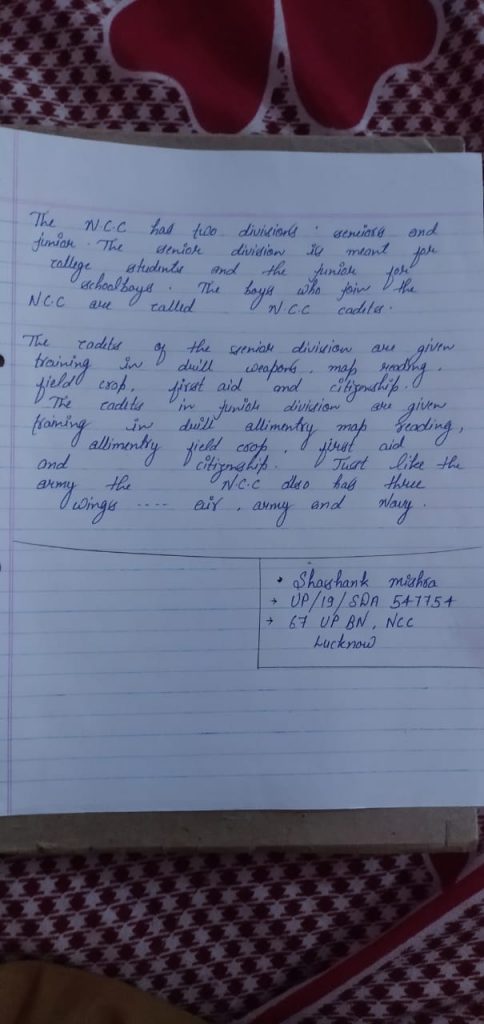 The N.C.C has two divisions : seniors and
junior. The senior division is meant for
college students and the junior for
schoolboys. The boys who join the
N.C.C are called N.C.C cadites.
The cadits of the senior division are given
training in drill weapons, map reading,
field crop, first aid and citizenship.
The cadits in junior division are given
training in drill allimentry map reading,
allimentry field crop, first aid
and citizenship. Just like the
army the N.C.C also has three
wings .... air, army and Navy.
• Shashank mishra
→ UP/19/SDA 547754
→ 67 UP BN, NCC
Lucknow